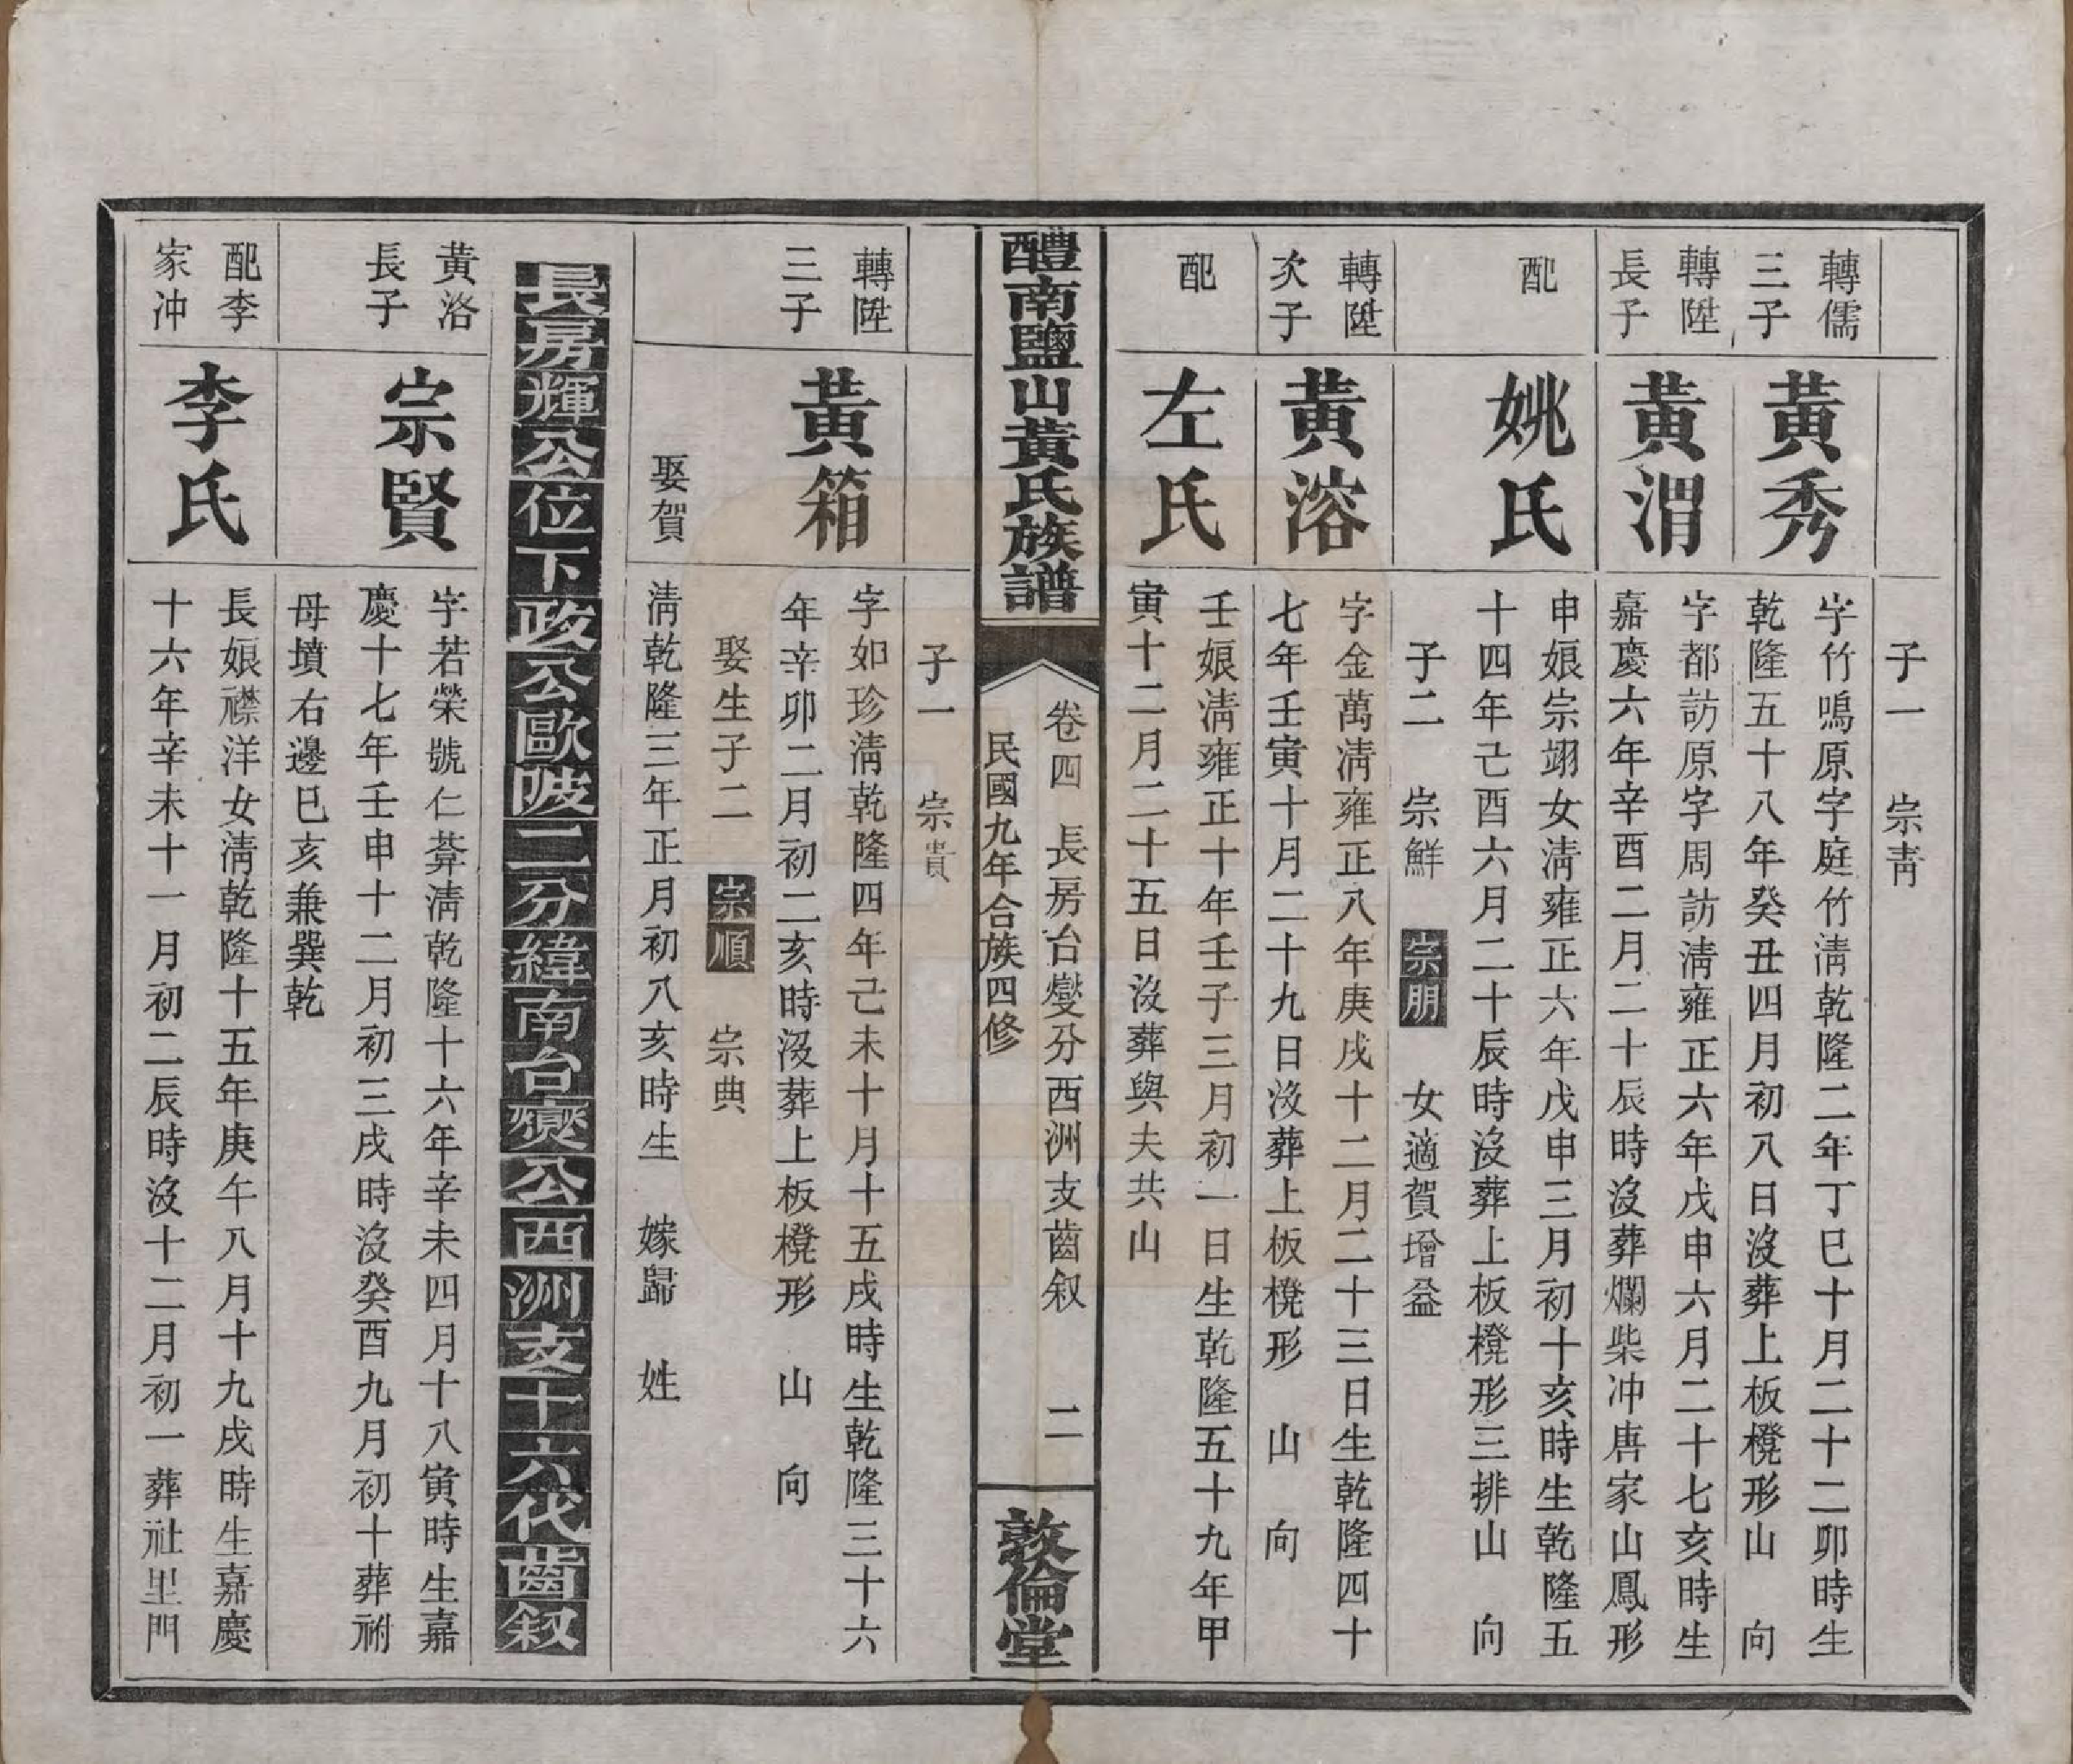 子一　宗青
轉儒三子
黃秀
字竹鳴原字庭竹清乾隆二年丁巳十月二十二卯時生
乾隆五十八年癸丑四月初八日沒葬上板櫈形山　向
轉陞長子
黃渭
字都訪原字周訪清雍正六年戊申六月二十七亥時生
嘉慶六年辛酉二月二十辰時沒葬爛柴冲唐家山鳳形
配
姚氏
申娘宗翊女清雍正六年戊申三月初十亥時生乾隆五
十四年己酉六月二十辰時沒葬上板櫈形三排山　向
子二　宗鮮　宗朋　女適賀增益
轉陞次子
黃溶
字金萬清雍正八年庚戌十二月二十三日生乾隆四十
七年壬寅十月二十九日沒葬上板櫈形　山　向
配
左氏
壬娘清雍正十年壬子三月初一日生乾隆五十九年甲
寅十二月二十五日沒葬與夫共山
醴南鹽山黃氏族譜
卷四　長房台燮分西洲支齒叙　二
民國九年合族四修
敦倫堂
子一　宗貴
轉陞三子
黃箱
字如珍清乾隆四年己未十月十五戌時生乾隆三十六
年辛卯二月初二亥時沒葬上板櫈形　山　向
娶生子二　宗順　宗典
娶賀
清乾隆三年正月初八亥時生　嫁歸　姓
長房輝公位下政公歐陂二分緯南台燮公西洲支十六代齒叙
黃洛長子
宗賢
字若榮號仁莽清乾隆十六年辛未四月十八寅時生嘉
慶十七年壬申十二月初三戌時沒癸酉九月初十葬祔
母墳右邊巳亥兼巽乾
配李家冲
李氏
長娘襟洋女清乾隆十五年庚午八月十九戌時生嘉慶
十六年辛未十一月初二辰時沒十二月初一葬社里門